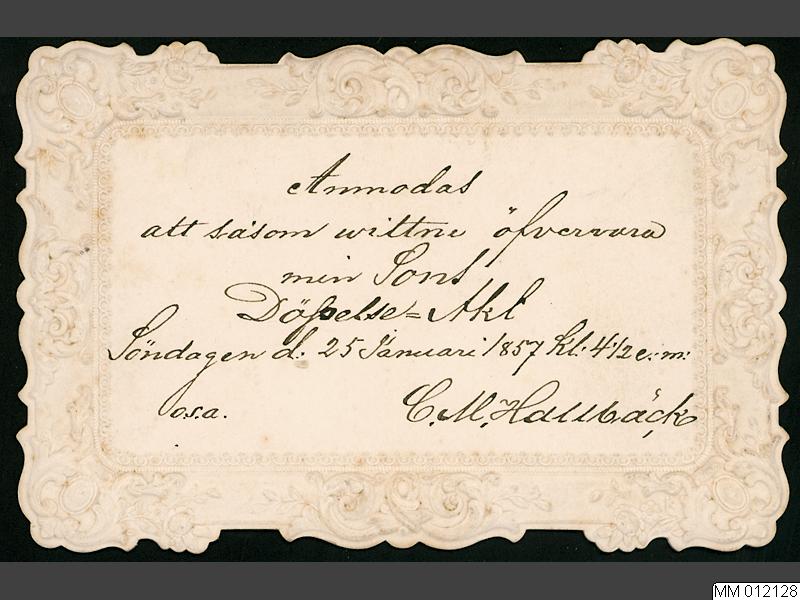 Anmodas
att såsom wittne öfvervara
min Sons
Döpelse=Akt
Söndagen d: 25 Januari 1857 Kl: 4 1/2 e.m:
o.s.a.
C.M. Hallbäck
MM 012128